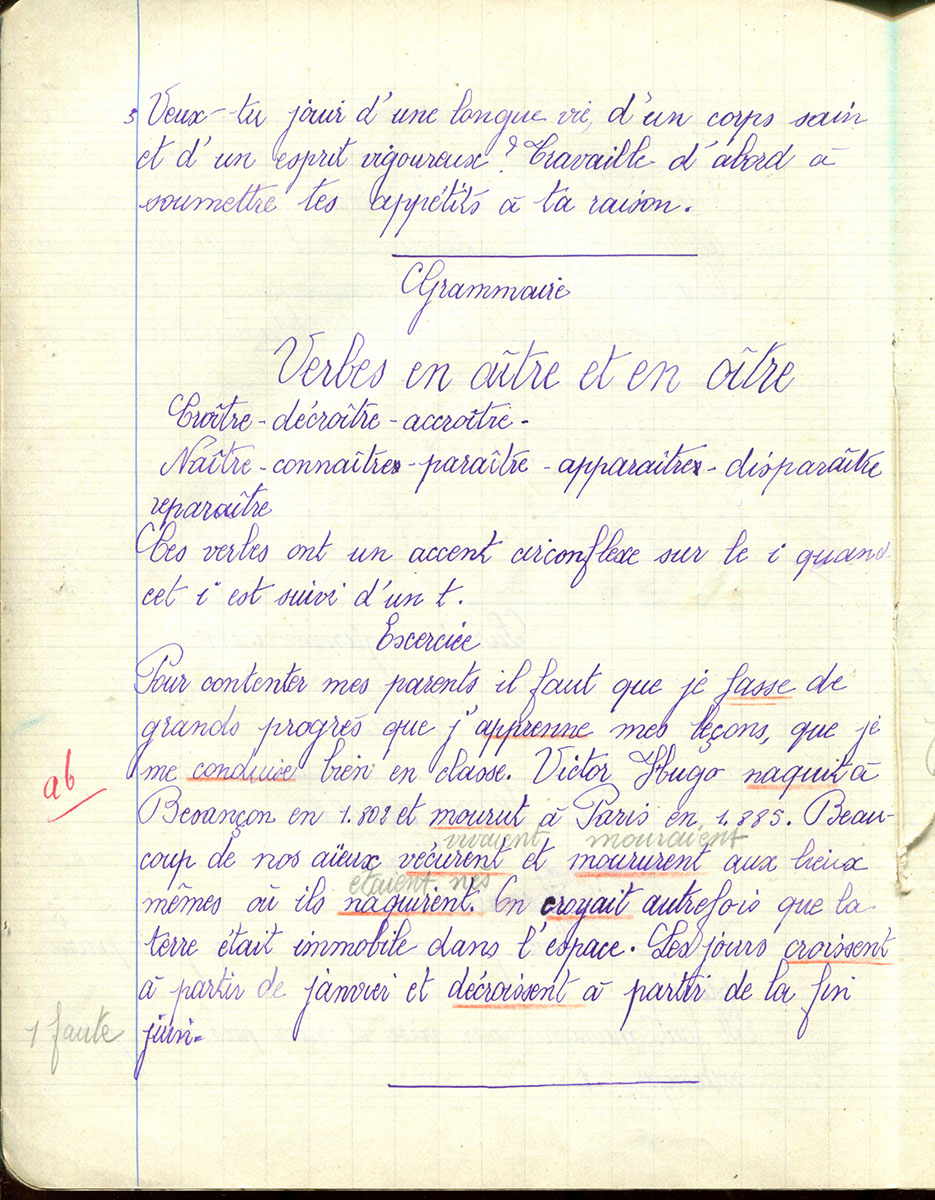 5 Veux-tu jouir d'une longue vie, d'un corps sain
et d'un esprit vigoureux? Travaille d'abord à
soumettre tes appétits à ta raison.
Grammaire
Verbes en aître et en oître
Croître - décroître - accroître -
Naître - connaître - paraître - apparaître - disparaître
reparaître
Ces verbes ont un accent circonflexe sur le i quand
cet i est suivi d'un t.
Excercice
Pour contenter mes parents il faut que je fasse de
grands progrès que j'apprenne mes leçons, que je
me conduise bien en classe. Victor Hugo naquit à
ab
Besançon en 1.802 et mourut à Paris en 1.885. Beau-
vivaient mouraient
coup de nos aïeux vécurent et moururent aux lieux
étaient nés
mêmes où ils naquirent. On croyait autrefois que la
terre était immobile dans l'espace. Les jours croissent
à partir de janvier et décroissent à partir de la fin
1 faute
juin.